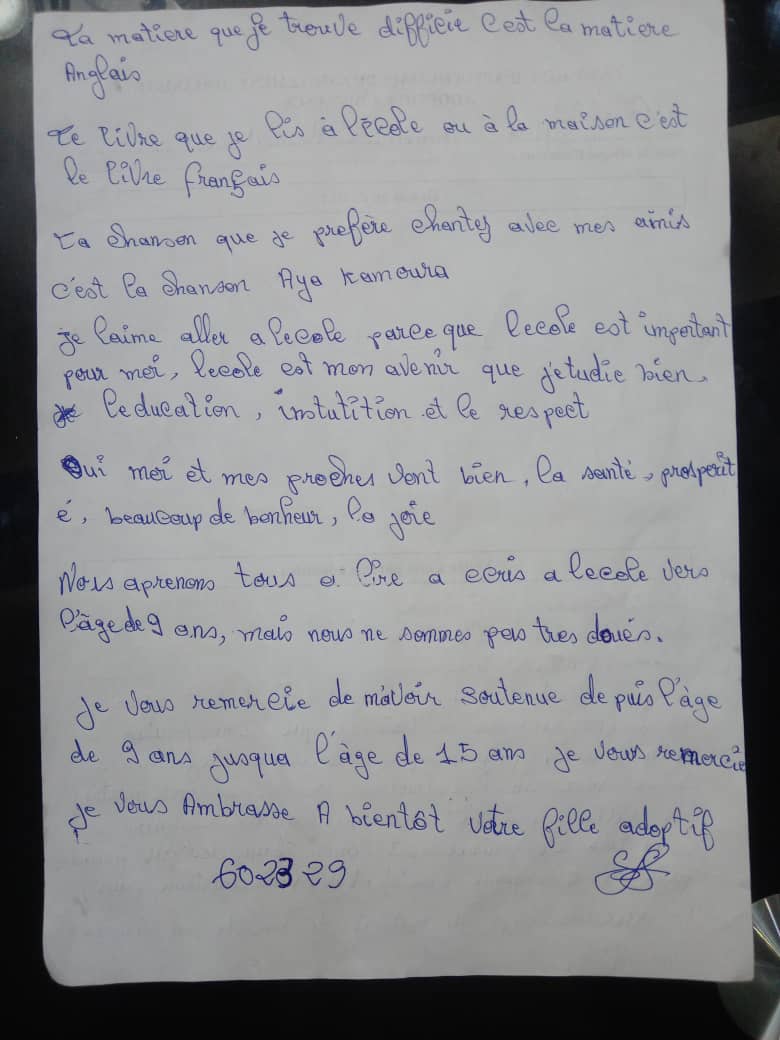 La matiere que je trouve difficie c'est la matiere
Anglais
Le livre que je lis à l'école ou à la maison c'est
le livre français
La Shanson que je prefère chantez avec mes amis
c'est la Shanson Aya Kamoura
je l'aime aller a lecole parce que lecole est important
pour moi, lecole est mon avenir que j'etudie bien.
l'education, instutition et le respect
Oui moi et mes proches vont bien, la santé, prosperit
é, beaucoup de bonheur, la joie
Nous aprenons tous a lire a ecris a lecole vers
l'âge de 9 ans, mais nous ne sommes pas tres doués.
Je vous remercie de m'avoir soutenue de puis l'âge
de 9 ans jusqua l'âge de 15 ans je vous remercie
je vous Ambrasse A bientôt votre fille adoptif
602329